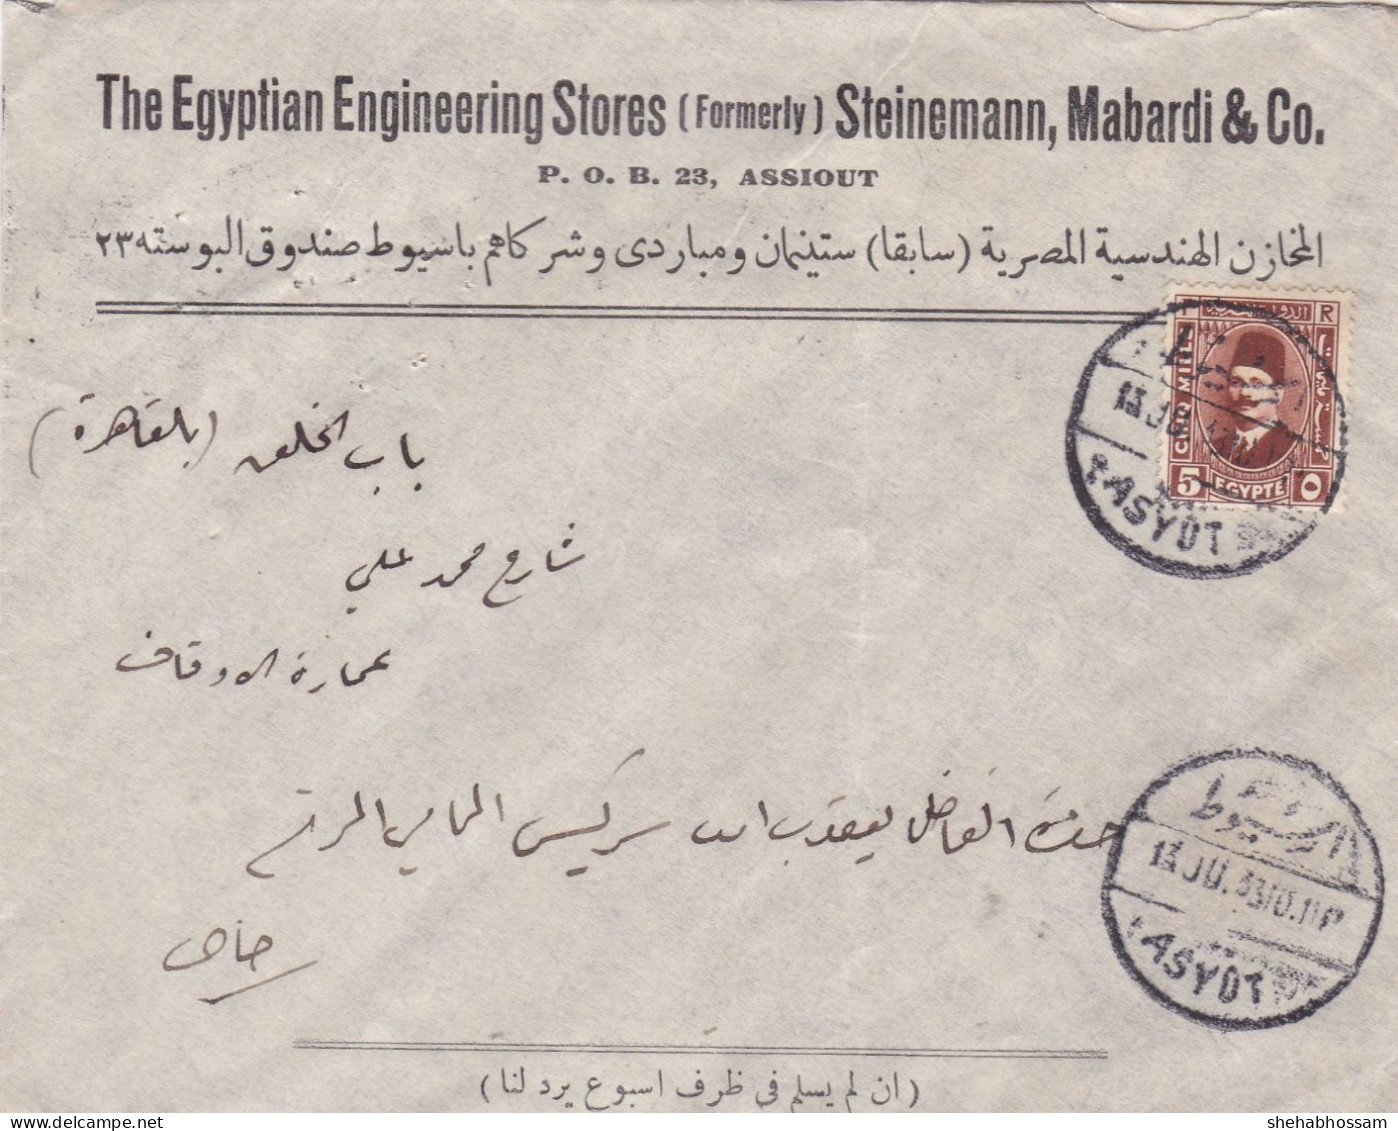 The Egyptian Engineering Stores (Formerly) Steinemann, Mabardi & Co.
P. O. B. 23, ASSIOUT
المخازن الهندسية المصرية (سابقا) ستينمان ومباردى وشركاهم باسيوط صندوق البوسته ٢٣
R
CINQ MILLS
5 EGYPTE ٥
13 JU
ASYUT
باب الخلق (بالقاهرة)
شارع محمد علي
عمارة الاوقاف
حضرة الفاضل يعقوب سركيس المحامي
خاص
اسيوط
13 JU. 33 / 0.11 P
ASYUT
(ان لم يسلم في ظرف اسبوع يرد لنا)
delcampe.net
shehabhossam